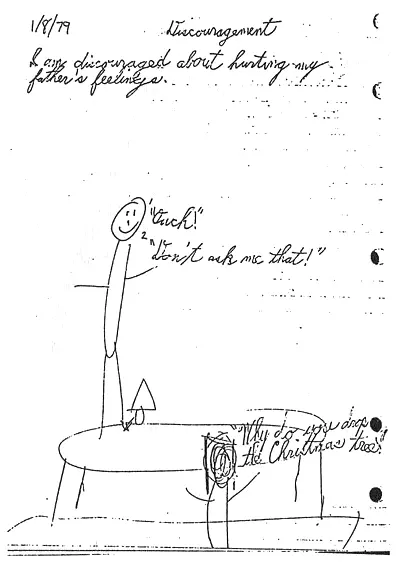 1/8/79 Discouragement
I am discouraged about hurting my
father's feelings.
"Ouch!"
2 "Don't ask me that!"
"Why do you drop
the Christmas tree?"
1